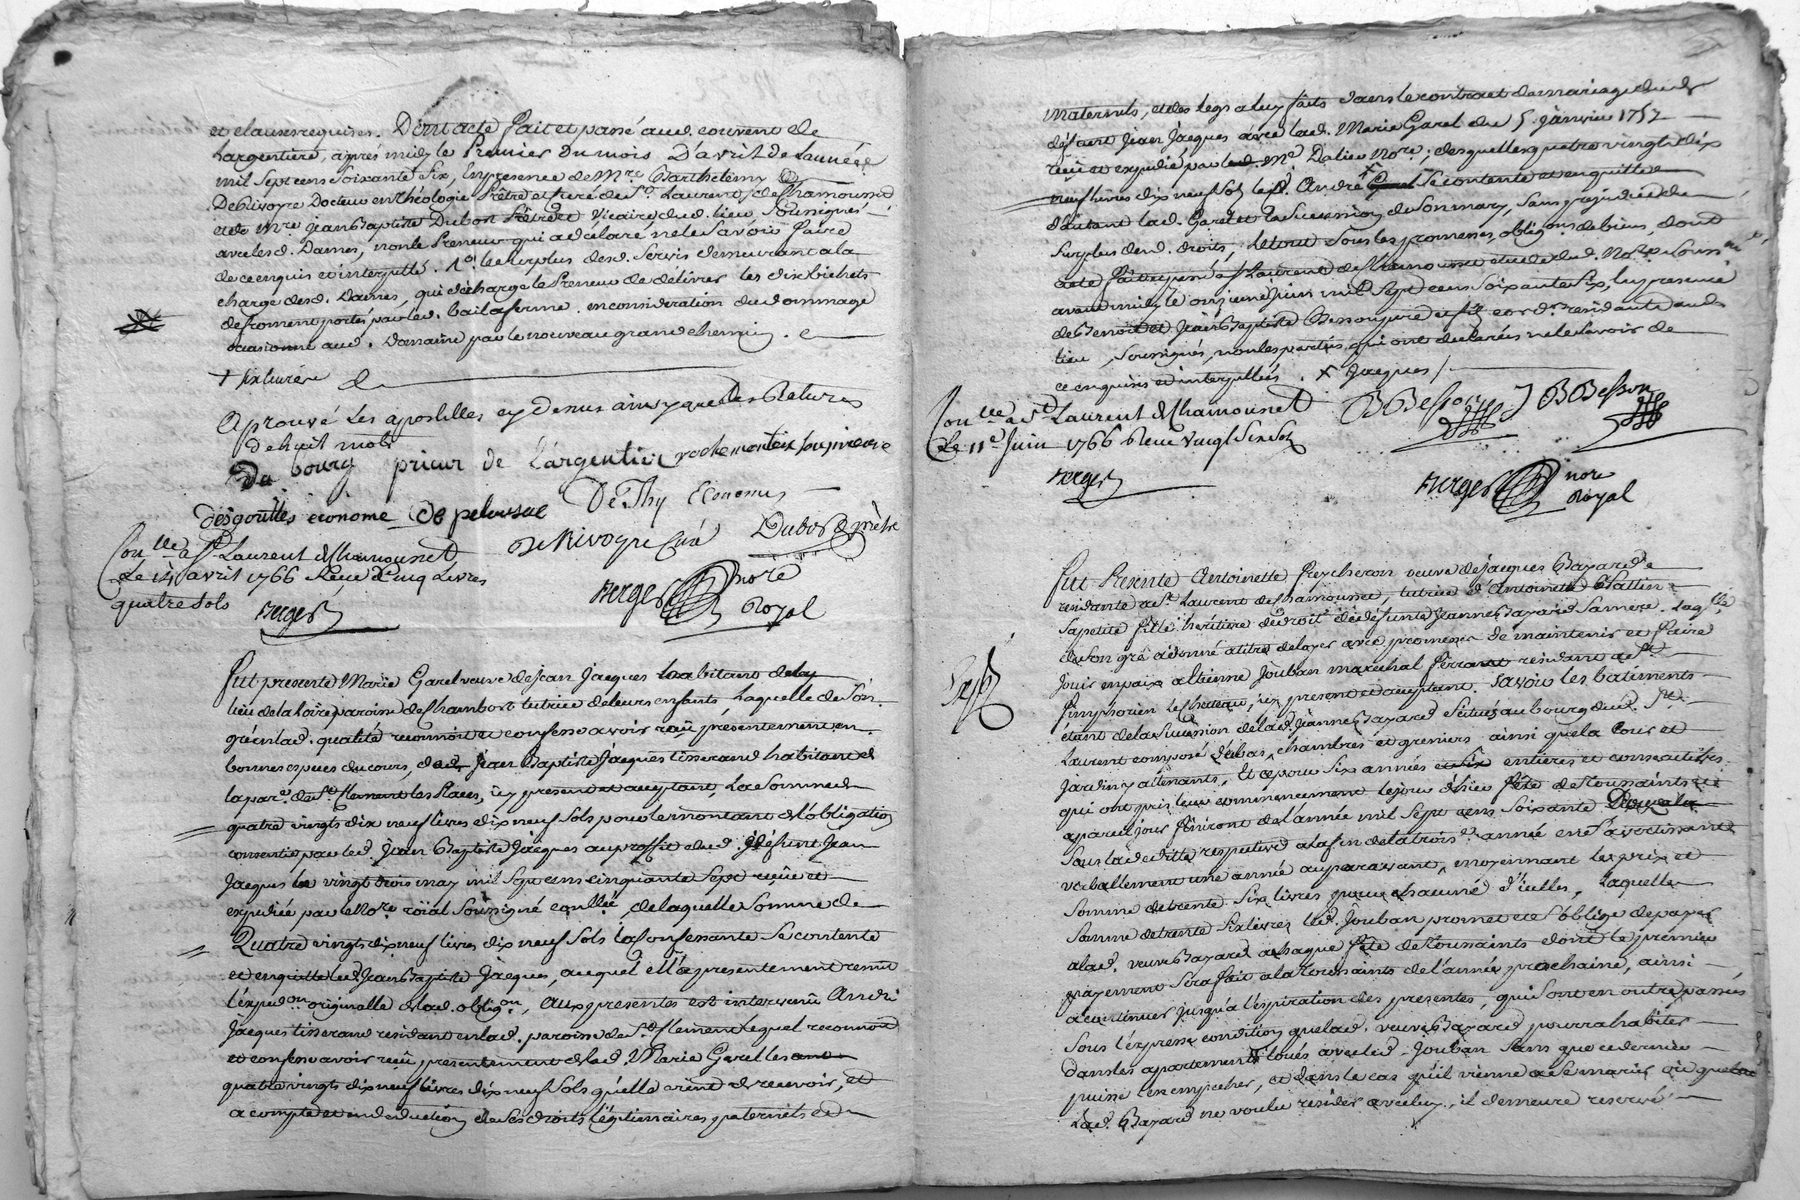 et clauses requises. Dont acte fait et passé aud. couvent de
Largentiére, aprés midy le Premier du mois D'avril de L'année
mil sept cens soixante six, En presence de Mre Barthelemy
DeRivoyre Docteur en théologie Prêtre et Curé de St. Laurent de Chamousset
et de Mre Jean Baptiste Dubost Prêtre et Vicaire dud. lieu, soussignés
avec lesd. Dames, non le Preneur qui a déclaré ne le savoir faire
de ce enquis et interpellé. le surplus desd. servis demeurant a la
charge desd. Dames, qui décharge le Preneur de délivrer les dix bichets
de froment portés par led. bail a ferme en considération du dommage
ocasionné aud. Domaine par le nouveau grand chemin.
Aprouvé les apostilles cy dessus ainsy que les Ratures
de huit mots
Du bourg prieur de l'argentier
desgouttes économe De pelussac De Thy Econome
DeRivoyre Curé Dubost prêtre
Conlle a St Laurent de Chamousset
Le 14 avril 1766 Reçu Cinq Livres
quatre sols
Berger
Berger nore
Royal
Fut presente Marie Garel veuve de Jean Jacques habitant de la
lieu de la Loire paroisse de Chambost tutrice de leurs enfants, Laquelle de son
gré en lad. qualité reconnoit et confesse avoir reçû presentement en
bonnes espèces du cours, dud. Jean Baptiste Jacques tisserand habitant en
la parse. de St. Clement les Places, icy present et acceptant, La somme de
quatre vingts dix neuf livres dix neuf sols pour le montant de l'obligation
consentie par led. Jean Baptiste Jacques au proffit dud. défunt Jean
Jacques le vingt trois may mil sept cens cinquante sept reçûe et
expediée par le Nore. roïal soussigné conllée, de laquelle somme de
Quatre vingts dix neuf livres dix neuf sols la confessante se contente
et en quitte led. Jean Baptiste Jacques, auquel elle a presentement remis
l'expedon originelle de lad. obligon, aux presentes est intervenu André
Jacques tisserand residant en lad. paroisse de St. Clement Lequel reconnoit
et confesse avoir reçû presentement de lad. Marie Garel les
quatre vingts dix neuf livres dix neuf sols qu'elle vient de recevoir, et
a compte et en déduction de ses droits légitimaires paternels et
maternels, et des legs a luy faits dans le contract de mariage dud.
défunt Jean Jacques avec lad. Marie Garel du 5. janvier 1757
reçû et expedié par Me Dalieu Nore., desquelles quatre vingts dix
neuf livres dix neuf sols led. André se contente et en quitte
d'autant lad. Garel et la succession de son mary, sans préjudice du
surplus desd. droits, Le tout sous les promesses, obligons de biens, dont
acte fait et passé a St Laurent de Chamousset etude dud. Nore.
avant midy le onzieme Juin mil sept cens soixante six, En presence
de Benoit et Jean Baptiste Besson pere et fils residants aud.
lieu, soussignés, non les parties, qui ont declarés ne le savoir de
ce enquises et interpellées. x Jacques /.
Conlle a St Laurent de Chamousset
Le 11e Juin 1766 Reçu vingt six sols
Berger
B Besson J B Besson
Berger nore
Royal
Fut Presente Antoinette Percheron veuve de Jacques Bazard
residante a St. Laurent de Chamousset, tutrice d'Antoinette
sa petite fille héritière de droit de défunte Jeanne Bazard sa mere. Laqlle
de son gré a donné a titre de loyer avec promesse de maintenir et faire
jouir en paix a Etienne Jouban marechal ferrant residant a St.
Simphorien le Chateau, icy present et acceptant. Savoir les batiments
étant de la succession de lad. Jeanne Bazard Scitués au bourg dud. St.
Laurent composé de bas, chambres et greniers ainsi que la Cour et
Jardin y attenants, Et ce pour six années entieres et consecutives
qui ont pris leur commencement le jour d'hier fête de Toussaints
a pareil jour finiront de l'année mil sept cens soixante
sous la dedite respective a la fin de la troise. année en s'avertissant
verballement une année auparavant, moyennant le prix et
somme de trente six livres pour chacune d'icelles, Laquelle
somme de trente six livres led. Jouban promet et s'oblige de payer
a lad. veuve Bazard a chaque fête de Toussaints dont le premier
payement sera fait a la Toussaints de l'année prochaine, ainsi
a continuer jusqu'a l'expiration des presentes, qui sont en outre passées
sous l'expresse condition que lad. veuve Bazard pourra habiter
dans les apartements loués avec led. Jouban sans que ce dernier
puisse l'en empecher, et dans le cas qu'il vienne a se marier ou que
Lad. Bazard ne voulu resider avec luy, il demeure reservé